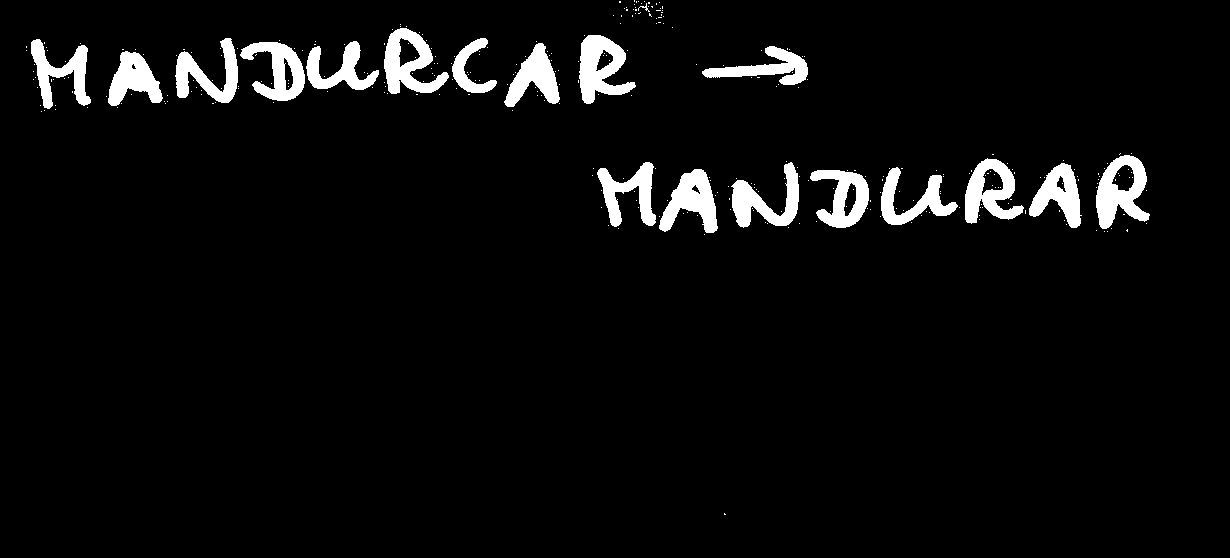 MANDURCAR →
MANDURAR